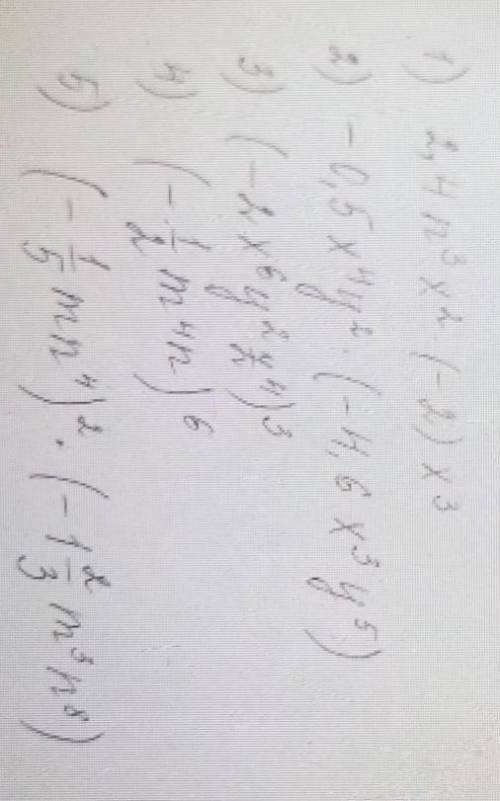 1) 2,4 n³ x² · (-2) x³
2) -0,5 x⁴ y² · (-4,6 x³ y⁵)
3) (-2 x⁶ y² z⁴)³
4) (-1/2 m⁴ n)⁶
5) (-1/5 m n⁴)² · (-1 2/3 m³ n⁸)